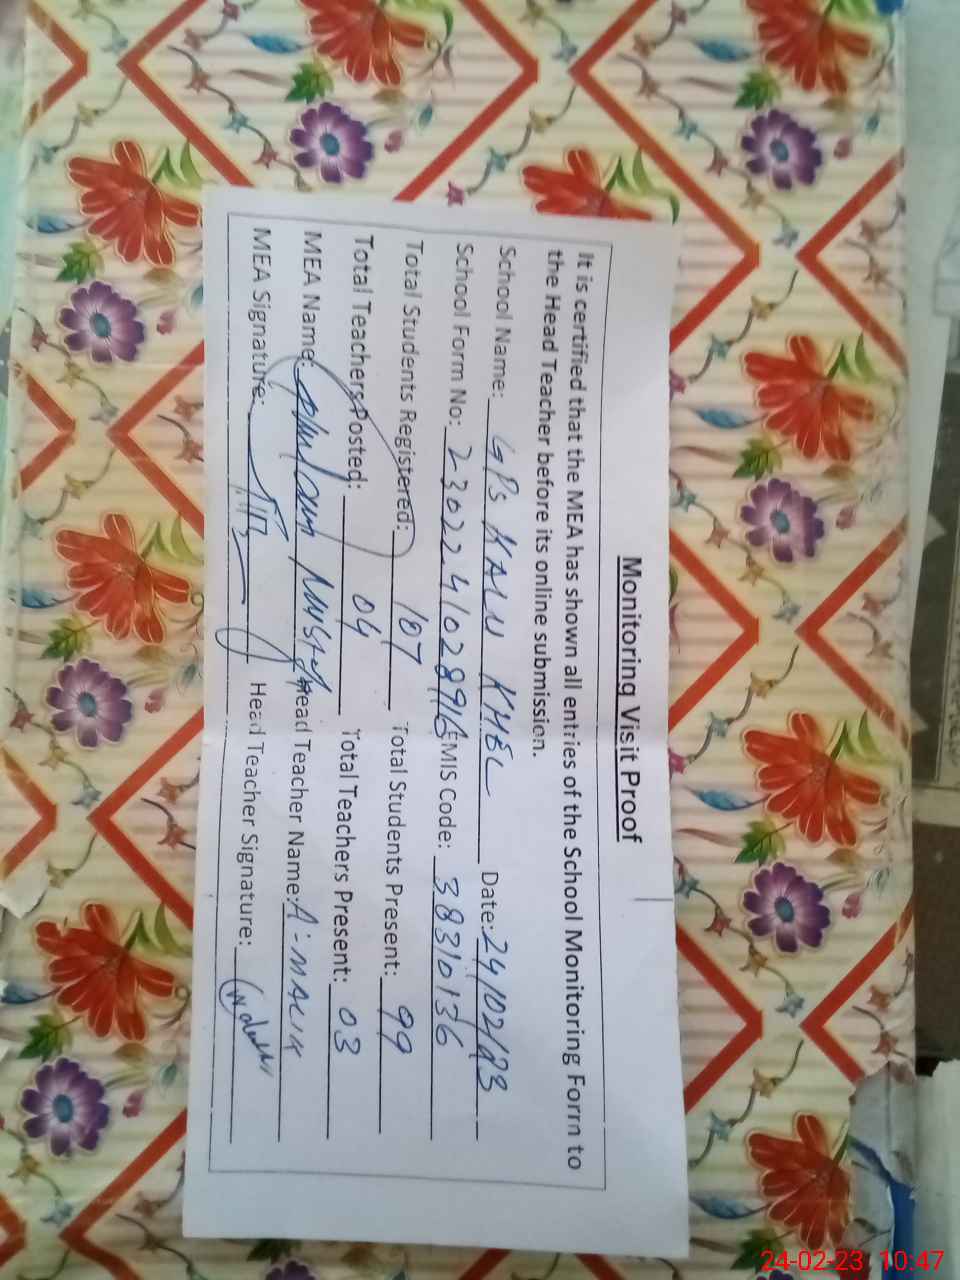 Monitoring Visit Proof
It is certified that the MEA has shown all entries of the School Monitoring Form to
the Head Teacher before its online submission.
School Name: GPS KALU KHEL Date: 24/02/23
School Form No: 230224102896 EMIS Code: 38310136
Total Students Registered: 107 Total Students Present: 99
Total Teachers Posted: 04 Total Teachers Present: 03
MEA Name: Head Teacher Name: A-MALIK
MEA Signature: Head Teacher Signature:
24-02-23 10:47